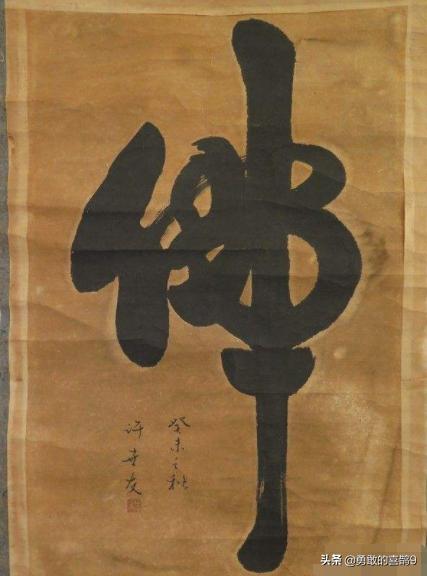 佛
癸未之秋
许世友
头条 @勇敢的喜鹊9